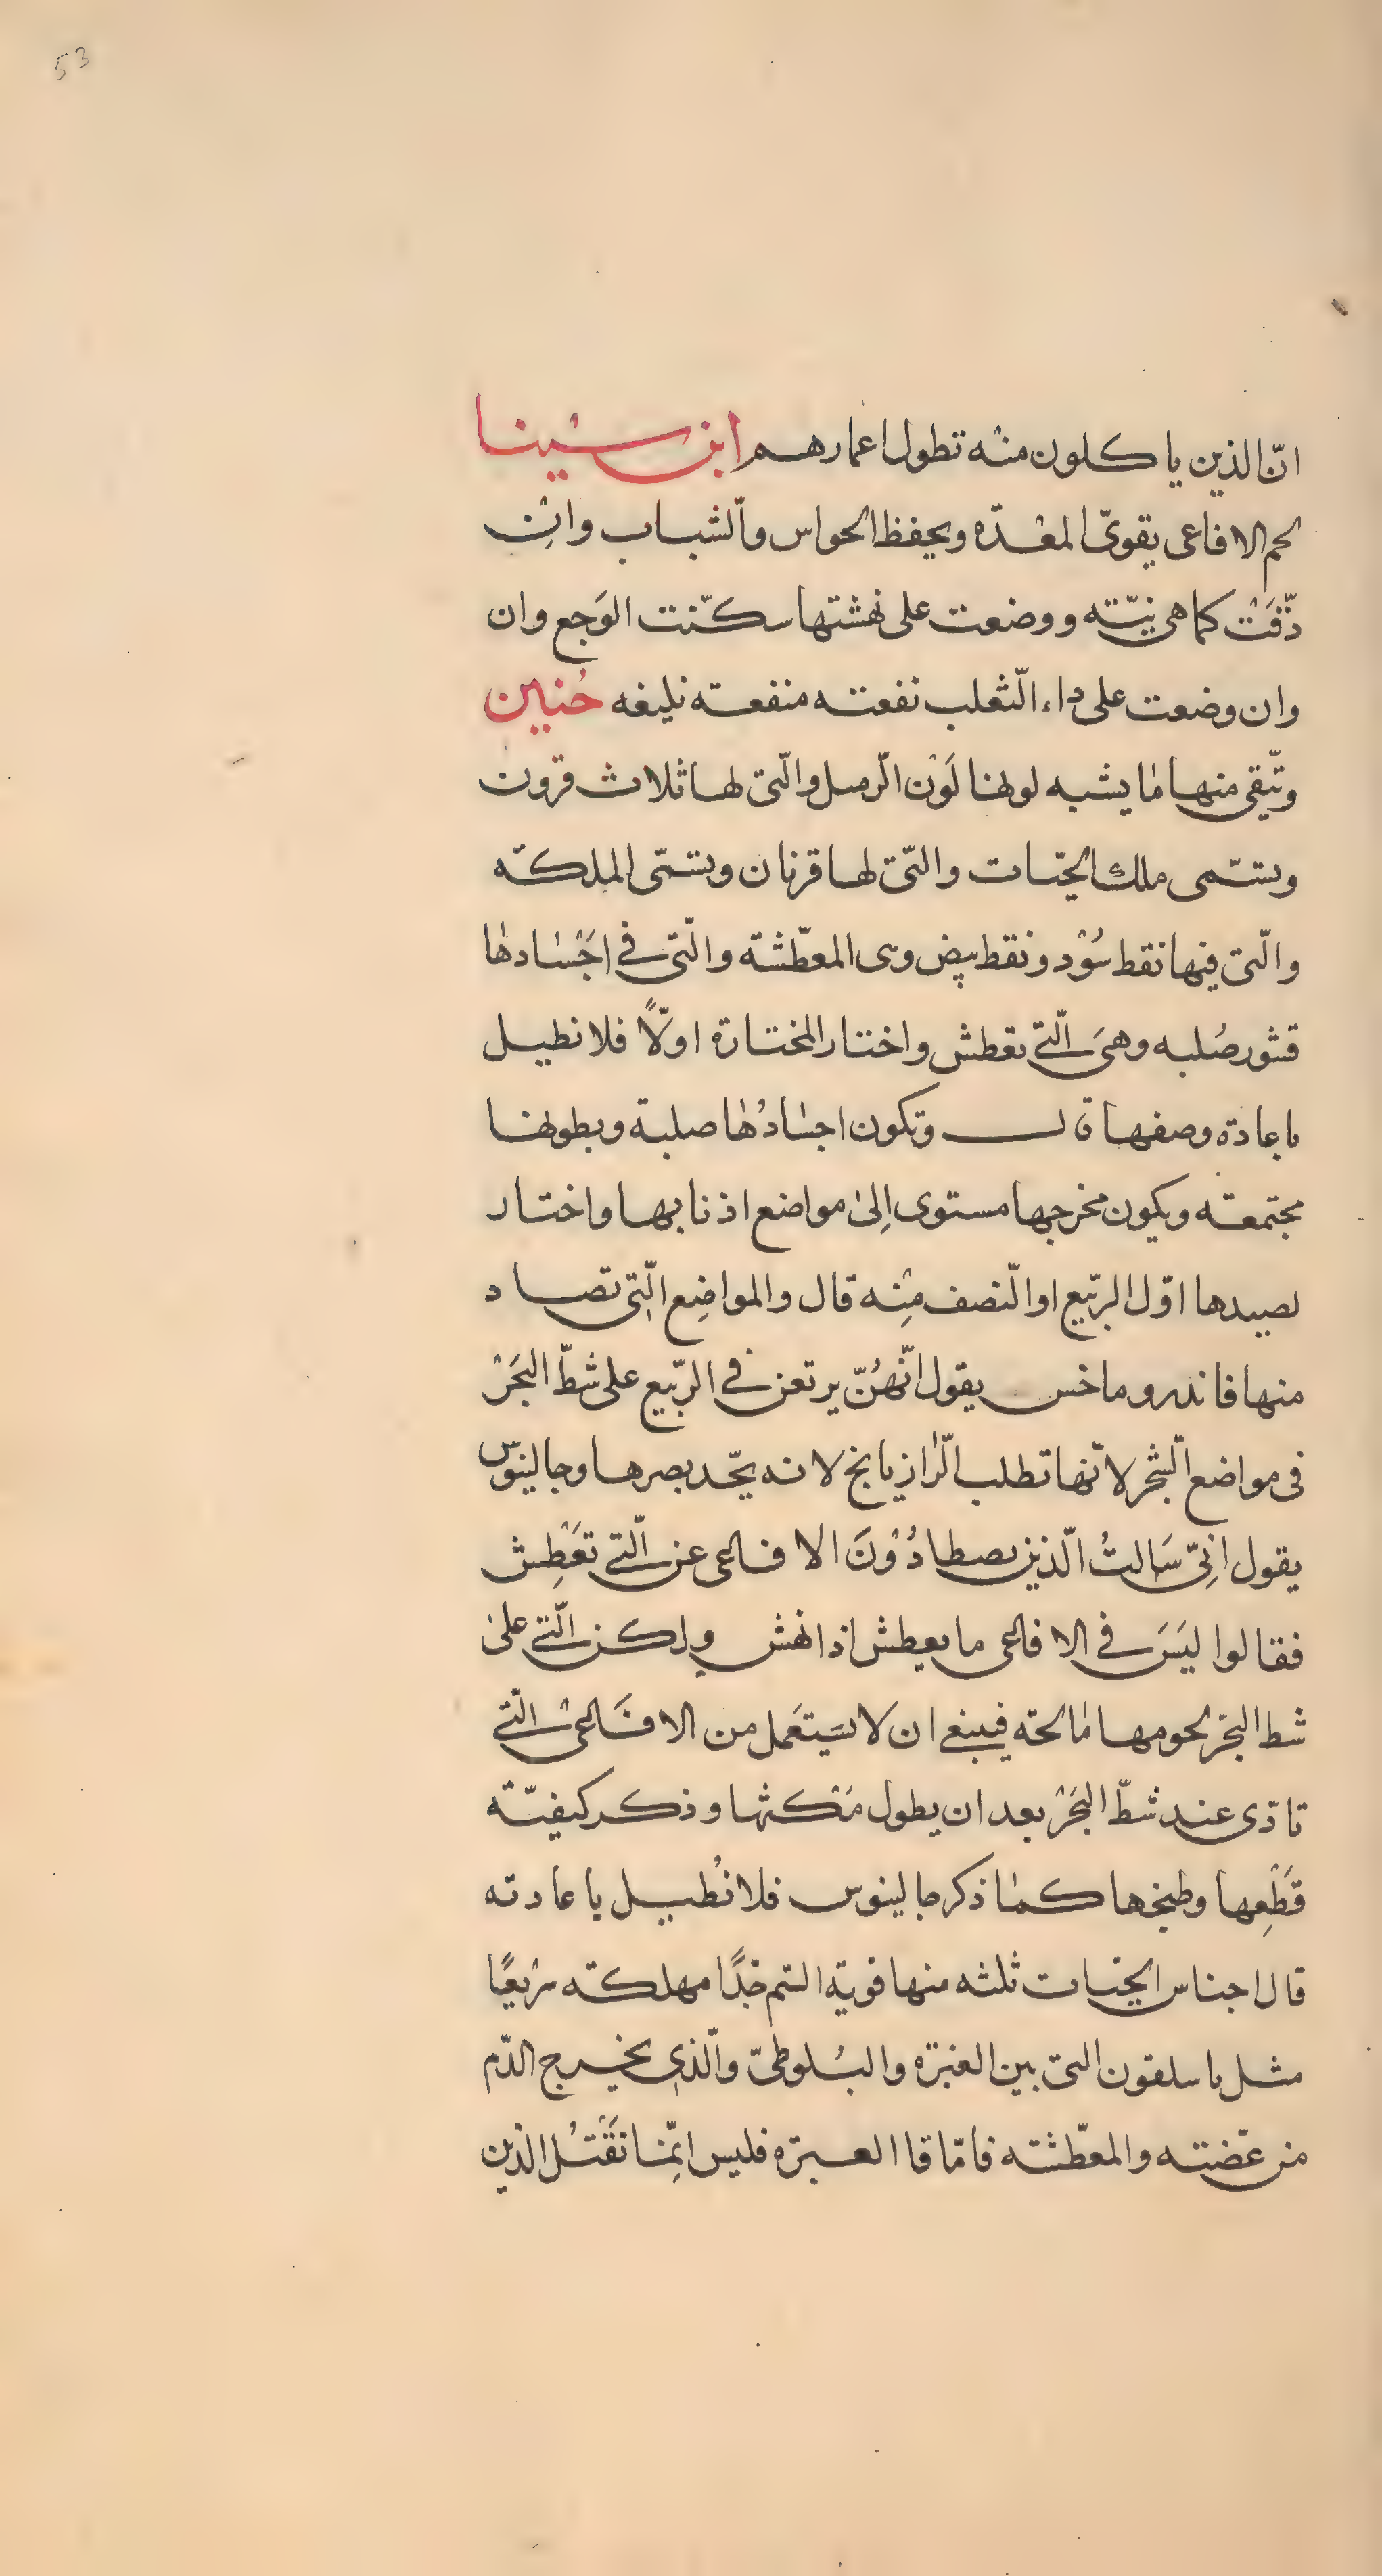 53
انّ الذين ياكلون منه تطول اعمارهم ابن سينا
لحم الافاعى يقوىّ المعدّه ويحفظ الحواس والشباب وان
دّقت كما هى نيّته ووضعت على نهشتها سكّنت الوَجع وان
وان وضعت على داء الّثعلب نفعته منفعته بليغه حُنين
وتّبقى منها ما يشبه لونها لَوْن الّرمل والّتى لها ثلاث قرون
ويستّمى ملك الحيّات والتّى لها قرنان ويسّمى الملكّه
والّتى فيها نقط سُوْد ونقط بيض وهى المعطّشته والّتى فى اجَسادها
قشور صُلبه وهىَ الّتى تعطش واختار المختارة اولّاً فلا نطيل
باعادة وصفها قال وتكون اجسادُها صلبة وبطونها
مجتمعته ويكون مخرجها مستوى اِلى مواضع اذنابها واختار
لصيدها اوّل الربّيع او الّنصف مِنه قال والمواضِع الّتِى تصاد
منها فاندروماخس يقول انّهُنّ يرتعن فى الربّيع على شطّ البحَرْ
فى مواضع الّشجر لانّها تطلب الّرازيانج لانه يحّد بصرها وجالينوّس
يقول انِىّ سَالتُ الّذين يصطادُوْنَ الافاعى عن الّتى تعَطِش
فقالوا ليَسَ فى الافاعى ما يعطش اذا نهش ولكن الّتى على
شط البحَر لحومها مالحته فينبغى ان لا يسَتعَمل من الافاَعىْ الّتى
تادّى عند شطّ البحَرْ بعد ان يطول مَكثها وذكر كيفيّته
قَطْعِها وطبخها كما ذكر جالينوس فلا نُطيل باعادته
قال اجناس الحيّات ثلثه منها قوية السّم جّداً مهلكته سريعًا
مثل باسلقون التى بين العنبرّه والبُلوطىّ والّذى يخرج الدّم
من عّضته والمعطّشته فامّا قا العبرّه فليس انّما تقَتُل الذين